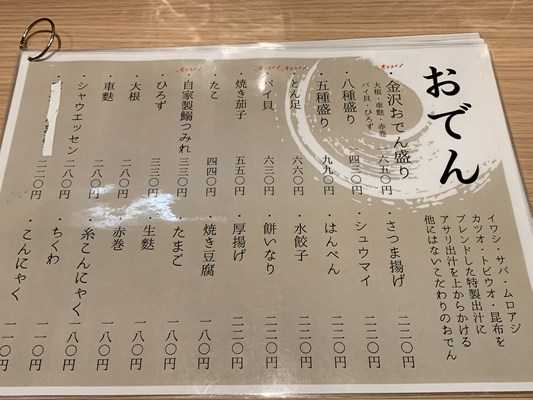 おでん
イワシ・サバ・ムロアジ
カツオ・トビウオ・昆布を
ブレンドした特製出汁に
アサリ出汁を上からかける
他にはないこだわりのおでん
・金沢おでん盛り 一六五〇円
大根・車麩・赤巻
バイ貝・ひろず
・八種盛り 一四三〇円
・五種盛り 九九〇円
・とん足 六六〇円
・バイ貝 六三〇円
・焼き茄子 五五〇円
・たこ 四四〇円
・自家製鰯つみれ 三三〇円
・ひろず 三三〇円
・大根 二八〇円
・車麩 二八〇円
・シャウエッセン 二八〇円
二二〇円
・さつま揚げ 二二〇円
・シュウマイ 二二〇円
・はんぺん 二二〇円
・水餃子 二二〇円
・餅いなり 二二〇円
・厚揚げ 二二〇円
・焼き豆腐 一八〇円
・たまご 一八〇円
・生麩 一八〇円
・赤巻 一八〇円
・糸こんにゃく 一八〇円
・ちくわ 一一〇円
・こんにゃく 一一〇円